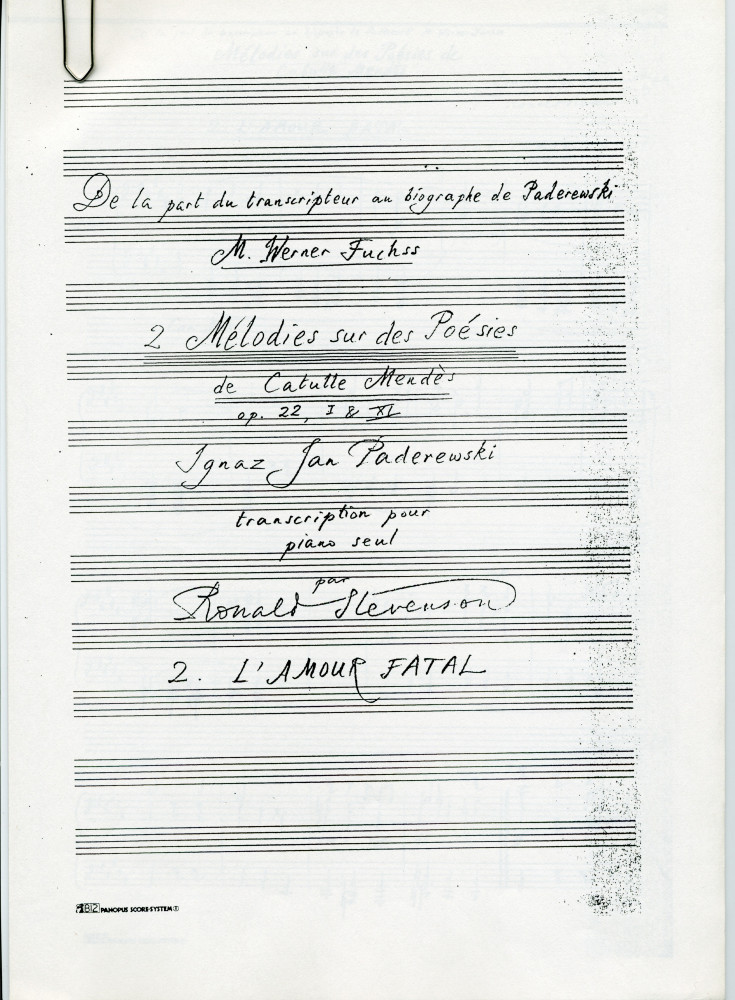 De la part du transcripteur au biographe de Paderewski
M. Werner Fuchss
2 Mélodies sur des Poésies
de Catulle Mendès
op. 22, I & XI
Ignaz Jan Paderewski
transcription pour
piano seul
par
Ronald Stevenson
2. L'AMOUR FATAL
PANOPUS SCORE-SYSTEM